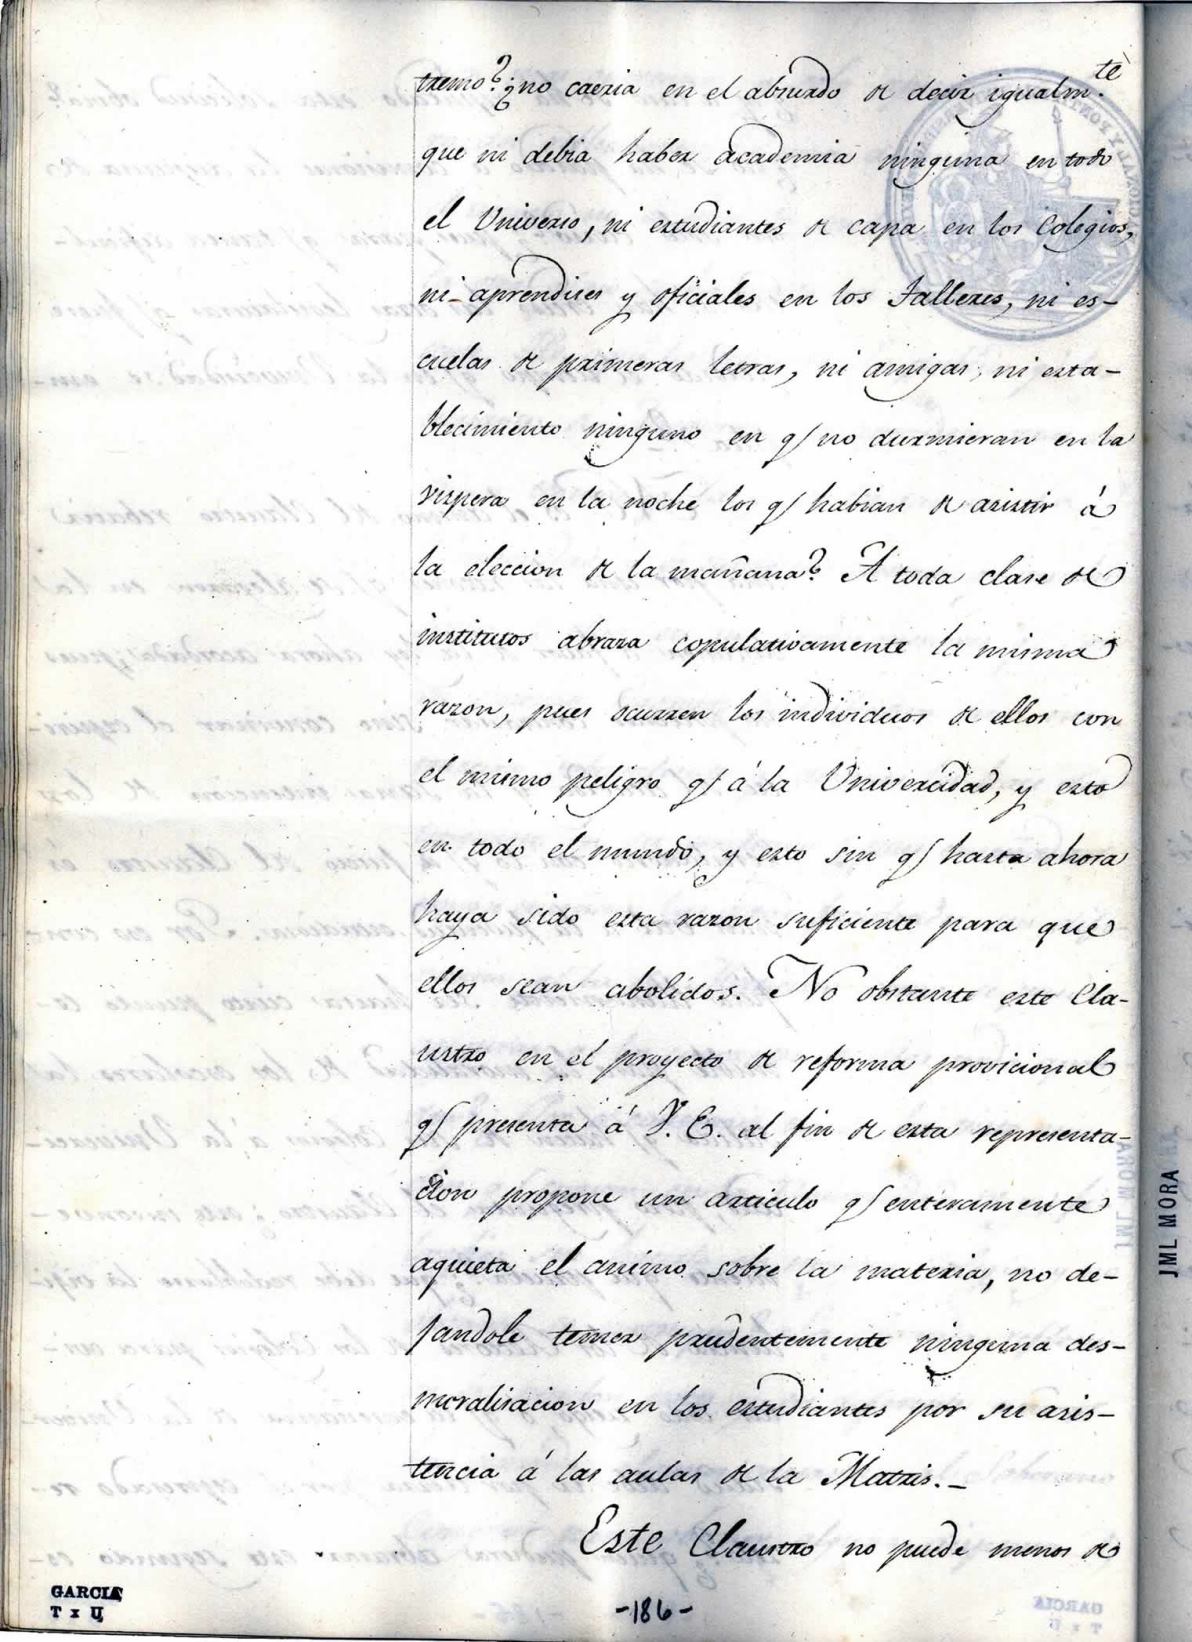 tremo? ¿no caeria en el absurdo de decir igualm.te
que ni debia haber academia ninguna en todo
el Universo, ni estudiantes de capa en los Colegios,
ni aprendises y oficiales en los Talleres, ni es-
cuelas de primeras letras, ni amigas, ni esta-
blecimiento ninguno en q/ no durmieran en la
vispera en la noche los q/ habian de asistir á
la eleccion de la mañana? A toda clase de
institutos abraza copulativamente la misma
razon, pues ocurren los individuos de ellos con
el mismo peligro q/ á la Univercidad, y esto
en todo el mundo, y esto sin q/ hasta ahora
haya sido esta razon suficiente para que
ellos sean abolidos. No obstante este Cla-
ustro en el proyecto de reforma provicional
q/ presenta á V. E. al fin de esta representa-
cion propone un articulo q/ enteramente
aquieta el animo sobre la materia, no de-
jandole temer prudentemente ninguna des-
moralisacion en los estudiantes por su asis-
tencia á las aulas de la Matris.-
Este Claustro no puede menos de
GARCIA
T x U
-186-
JML MORA